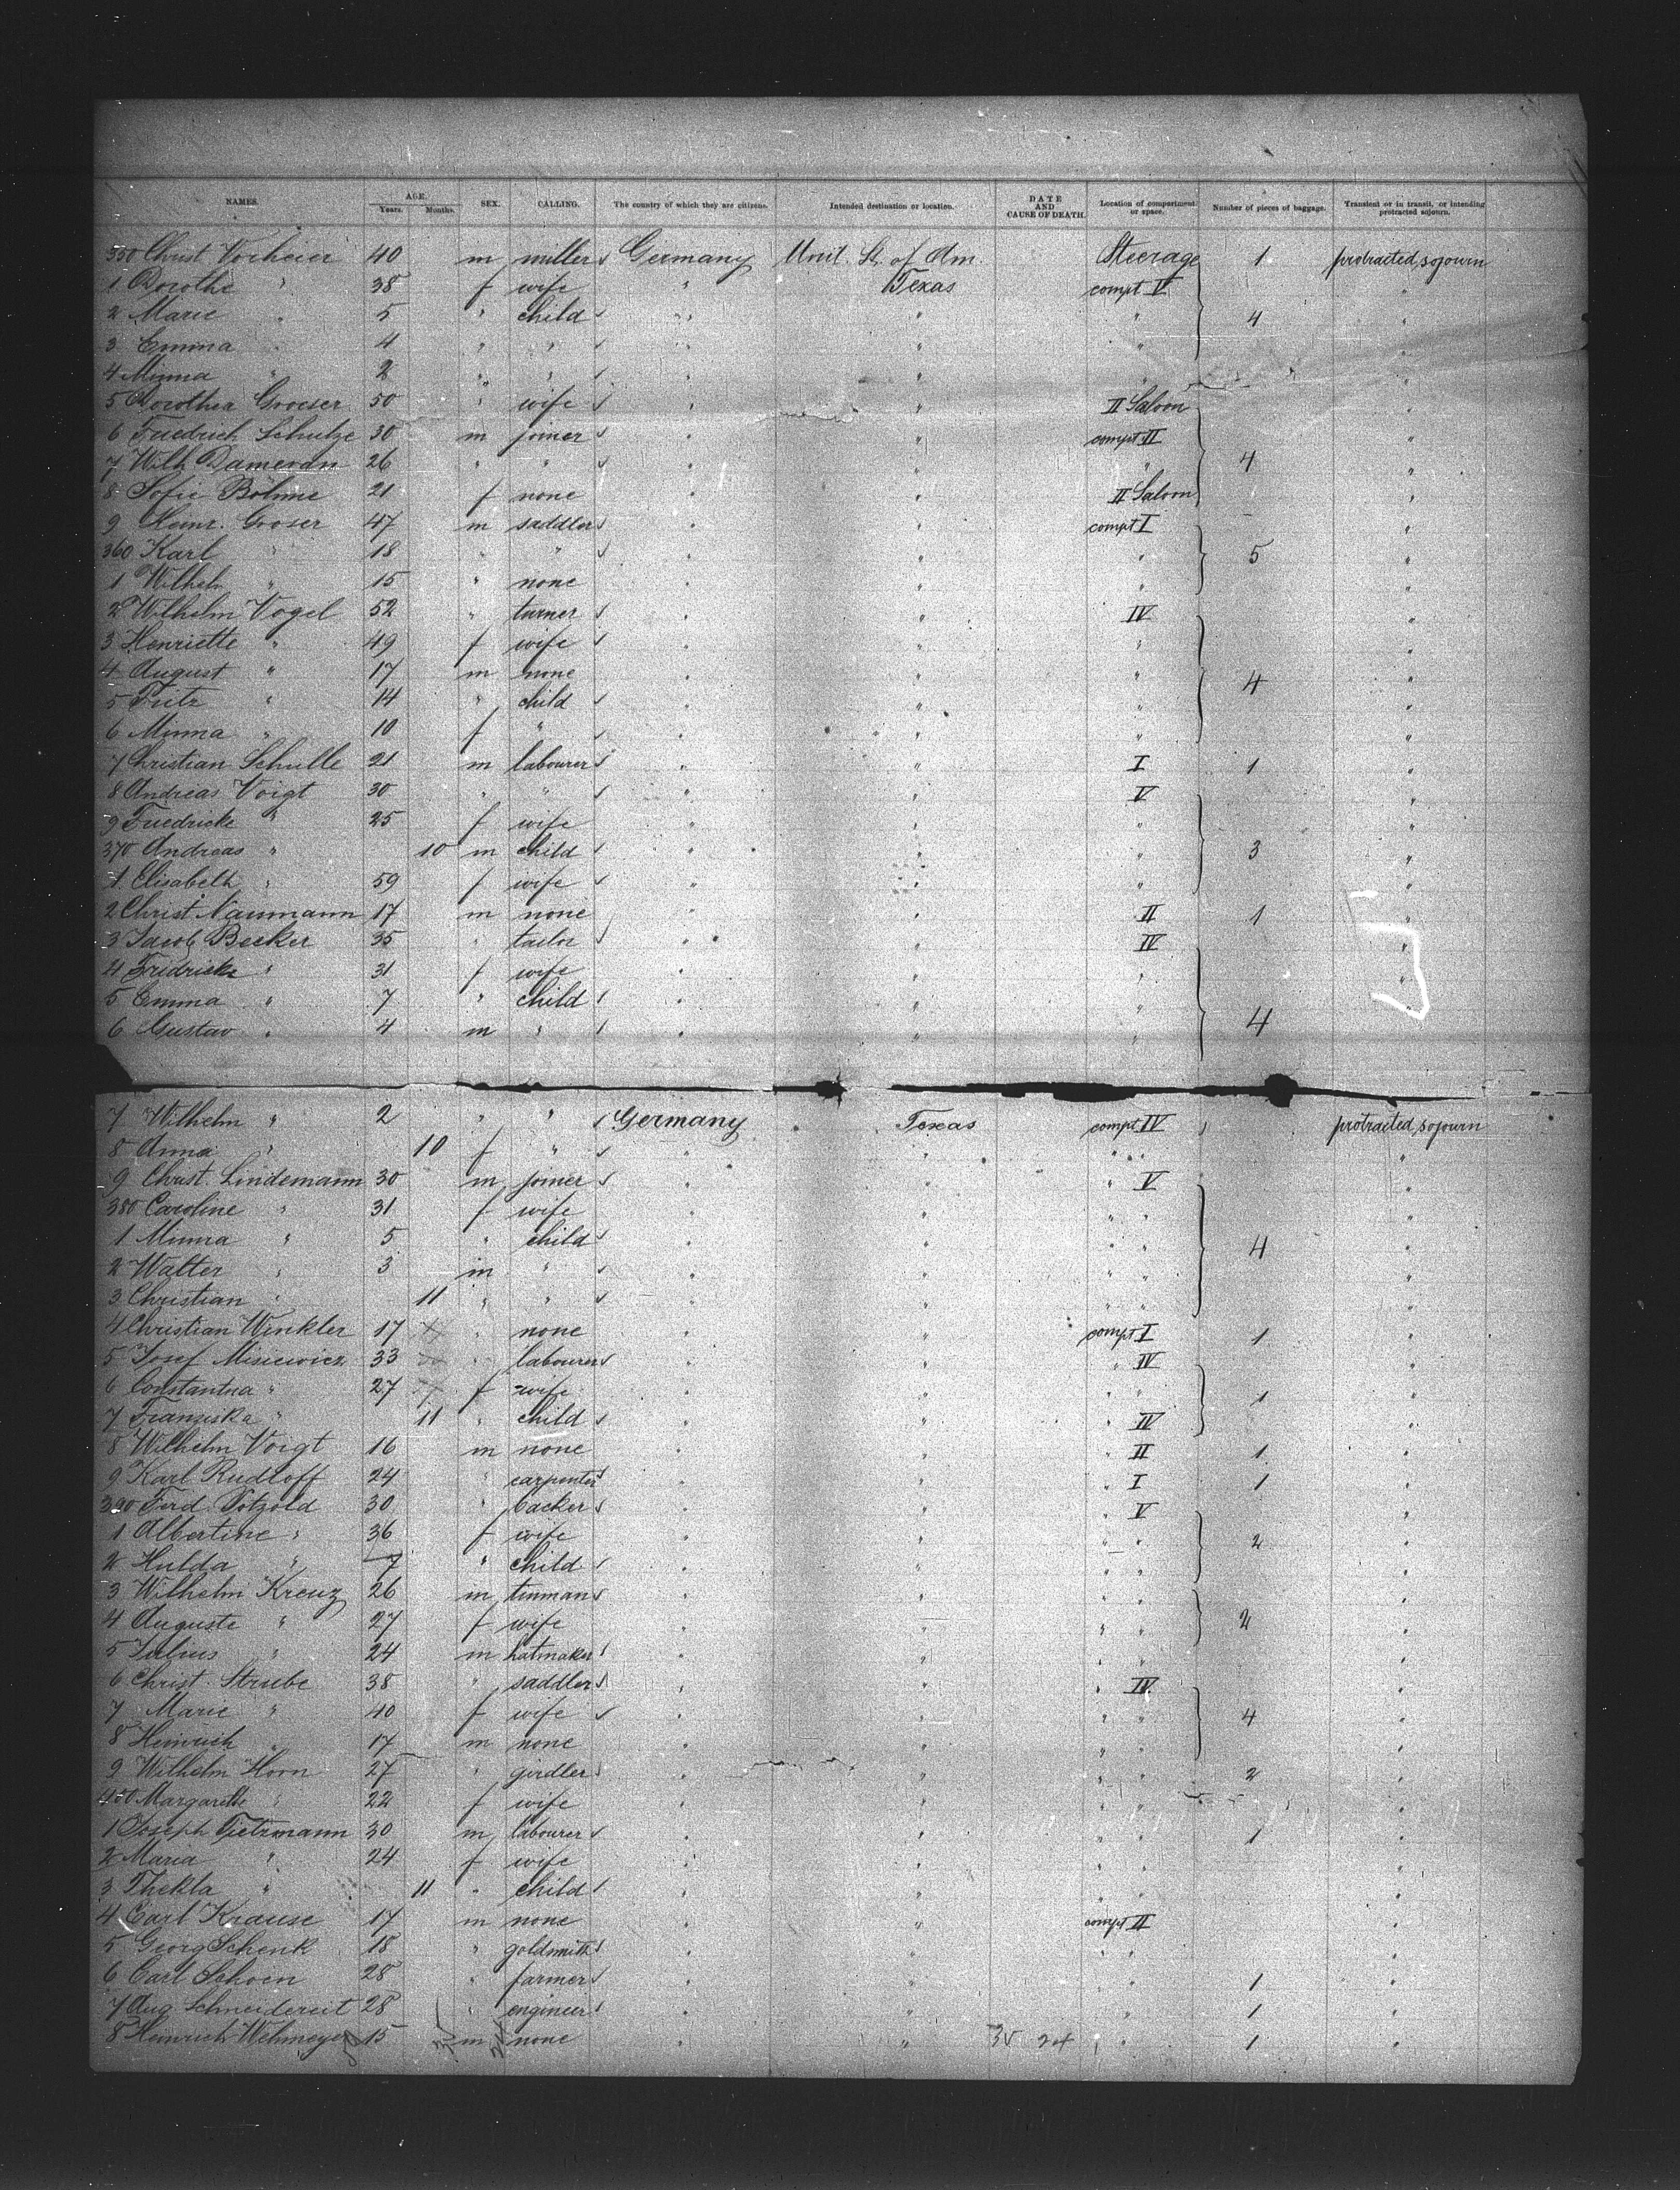 NAMES. AGE. SEX. CALLING. The country of which they are citizens. Intended destination or location. DATE AND CAUSE OF DEATH. Location of compartment or space. Number of pieces of baggage. Transient or in transit, or intending protracted sojourn.
Years. Months.
350 Christ Vorheier 40 m miller Germany Unit. St. of Am. Steerage 1 protracted sojourn
1 Dorothe " 38 f wife " Texas compt V "
2 Marie " 5 " child " " " 4 "
3 Emma " 4 " " " " " "
4 Minna " 2 " " " " " "
5 Dorothea Grooser 50 " wife " " II Saloon "
6 Friedrich Schulze 30 m joiner " " compt II "
7 Wilh. Damerdn 26 " " " " " 4 "
8 Sofie Böhme 21 f none " " II Saloon "
9 Heinr. Grooser 47 m saddler " " compt I "
360 Karl " 18 " " " " " 5 "
1 Wilhelm " 15 " none " " " "
2 Wilhelm Vogel 52 " turner " " IV "
3 Henriette " 49 f wife " " " "
4 August " 17 m none " " " 4 "
5 Fritz " 14 " child " " " "
6 Minna " 10 f " " " " "
7 Christian Schulle 21 m labourer " " I 1 "
8 Andreas Voigt 30 " " " " V "
9 Friedricke " 25 f wife " " " "
370 Andreas " 10 m child " " " 3 "
1 Elisabeth " 59 f wife " " " "
2 Christ Naumann 17 m none " " II 1 "
3 Jacob Becker 35 " tailor " " IV "
4 Fridricke " 31 f wife " " " "
5 Emma " 7 " child " " "
6 Gustav " 4 m " " " " 4
7 Wilhelm " 2 " " Germany Texas compt IV protracted sojourn
8 Anna " 10 f " " " " " "
9 Christ. Lindemann 30 m joiner " " " V "
380 Caroline " 31 f wife " " " " "
1 Minna " 5 " child " " " " 4 "
2 Walter " 3 m " " " " " "
3 Christian " 11 " " " " " " "
4 Christian Winkler 17 " none " " compt I 1 "
5 Josef Misiewicz 33 " labourer " " " IV "
6 Constantna " 27 f wife " " " " 1 "
7 Franziska " 11 " child " " IV "
8 Wilhelm Voigt 16 m none " " " II 1 "
9 Karl Rudloff 24 " carpenter " " " I 1 "
390 Ferd. Pötzold 30 " backer " " V "
1 Albertine " 36 f wife " " " " 2 "
2 Hulda " 7 " child " " " " "
3 Wilhelm Kreuz 26 m tinman " " " " "
4 Auguste " 27 f wife " " " " 2 "
5 Julius " 24 m hatmaker " " " " "
6 Christ. Strube 38 " saddler " " " IV. "
7 Marie " 40 f wife " " " " 4 "
8 Heinrich " 17 m none " " " " "
9 Wilhelm Horn 27 " girdler " " " " 2 "
400 Margarethe " 22 f wife " " " " "
1 Joseph Tietzmann 30 m labourer " " " " 1 "
2 Maria " 24 f wife " " " " "
3 Thekla " 11 " child " " " " "
4 Carl Krause 17 m none " " compt II "
5 Georg Schenk 18 " goldsmith " " " " "
6 Carl Schoen 28 " farmer " " " 1 "
7 Aug. Schneidereit 28 " engineer " " " 1 "
8 Heinrich Wehmeyer 15 m none " " 35 24 " 1 "